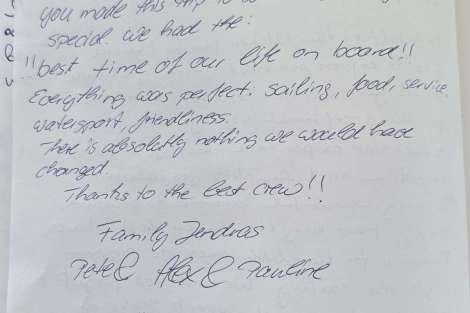 you made this trip
special. We had the:
"best time of our life on board!!
Everything was perfect: sailing, food, service,
watersport, friendliness.
There is absolutly nothing we would have
changed.
Thanks to the best crew!!
Family Jendras
Pete & Alex & Pauline